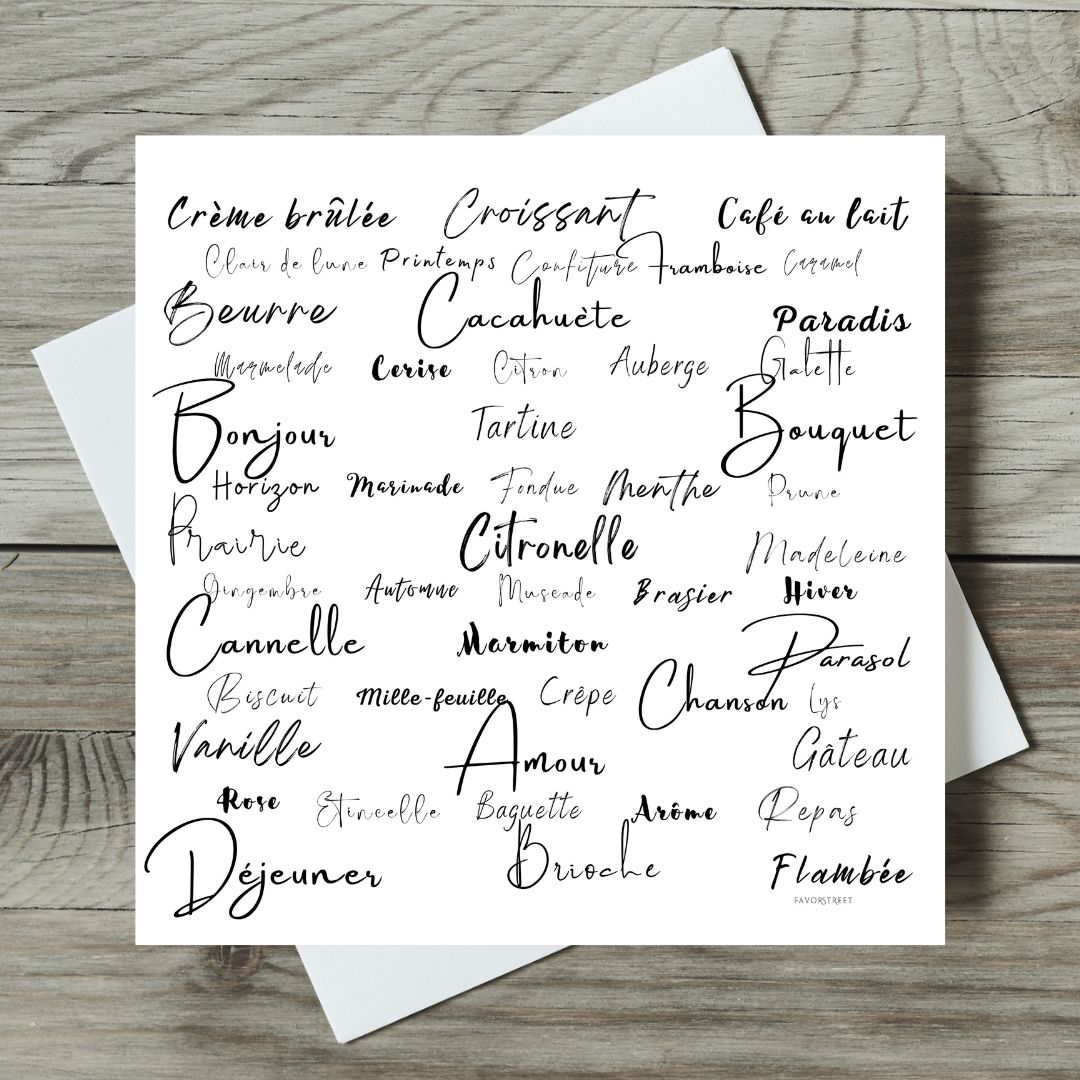 Crème brûlée Croissant Café au lait
Clair de lune Printemps Confiture Framboise Caramel
Beurre Cacahuète Paradis
Marmelade Cerise Citron Auberge Galette
Bonjour Tartine Bouquet
Horizon Marinade Fondue Menthe Prune
Prairie Citronelle Madeleine
Gingembre Automne Muscade Brasier Hiver
Cannelle Marmiton Parasol
Biscuit Mille-feuille Crêpe Chanson Lys
Vanille Amour Gâteau
Rose Etincelle Baguette Arôme Repas
Déjeuner Brioche Flambée
FAVORSTREET